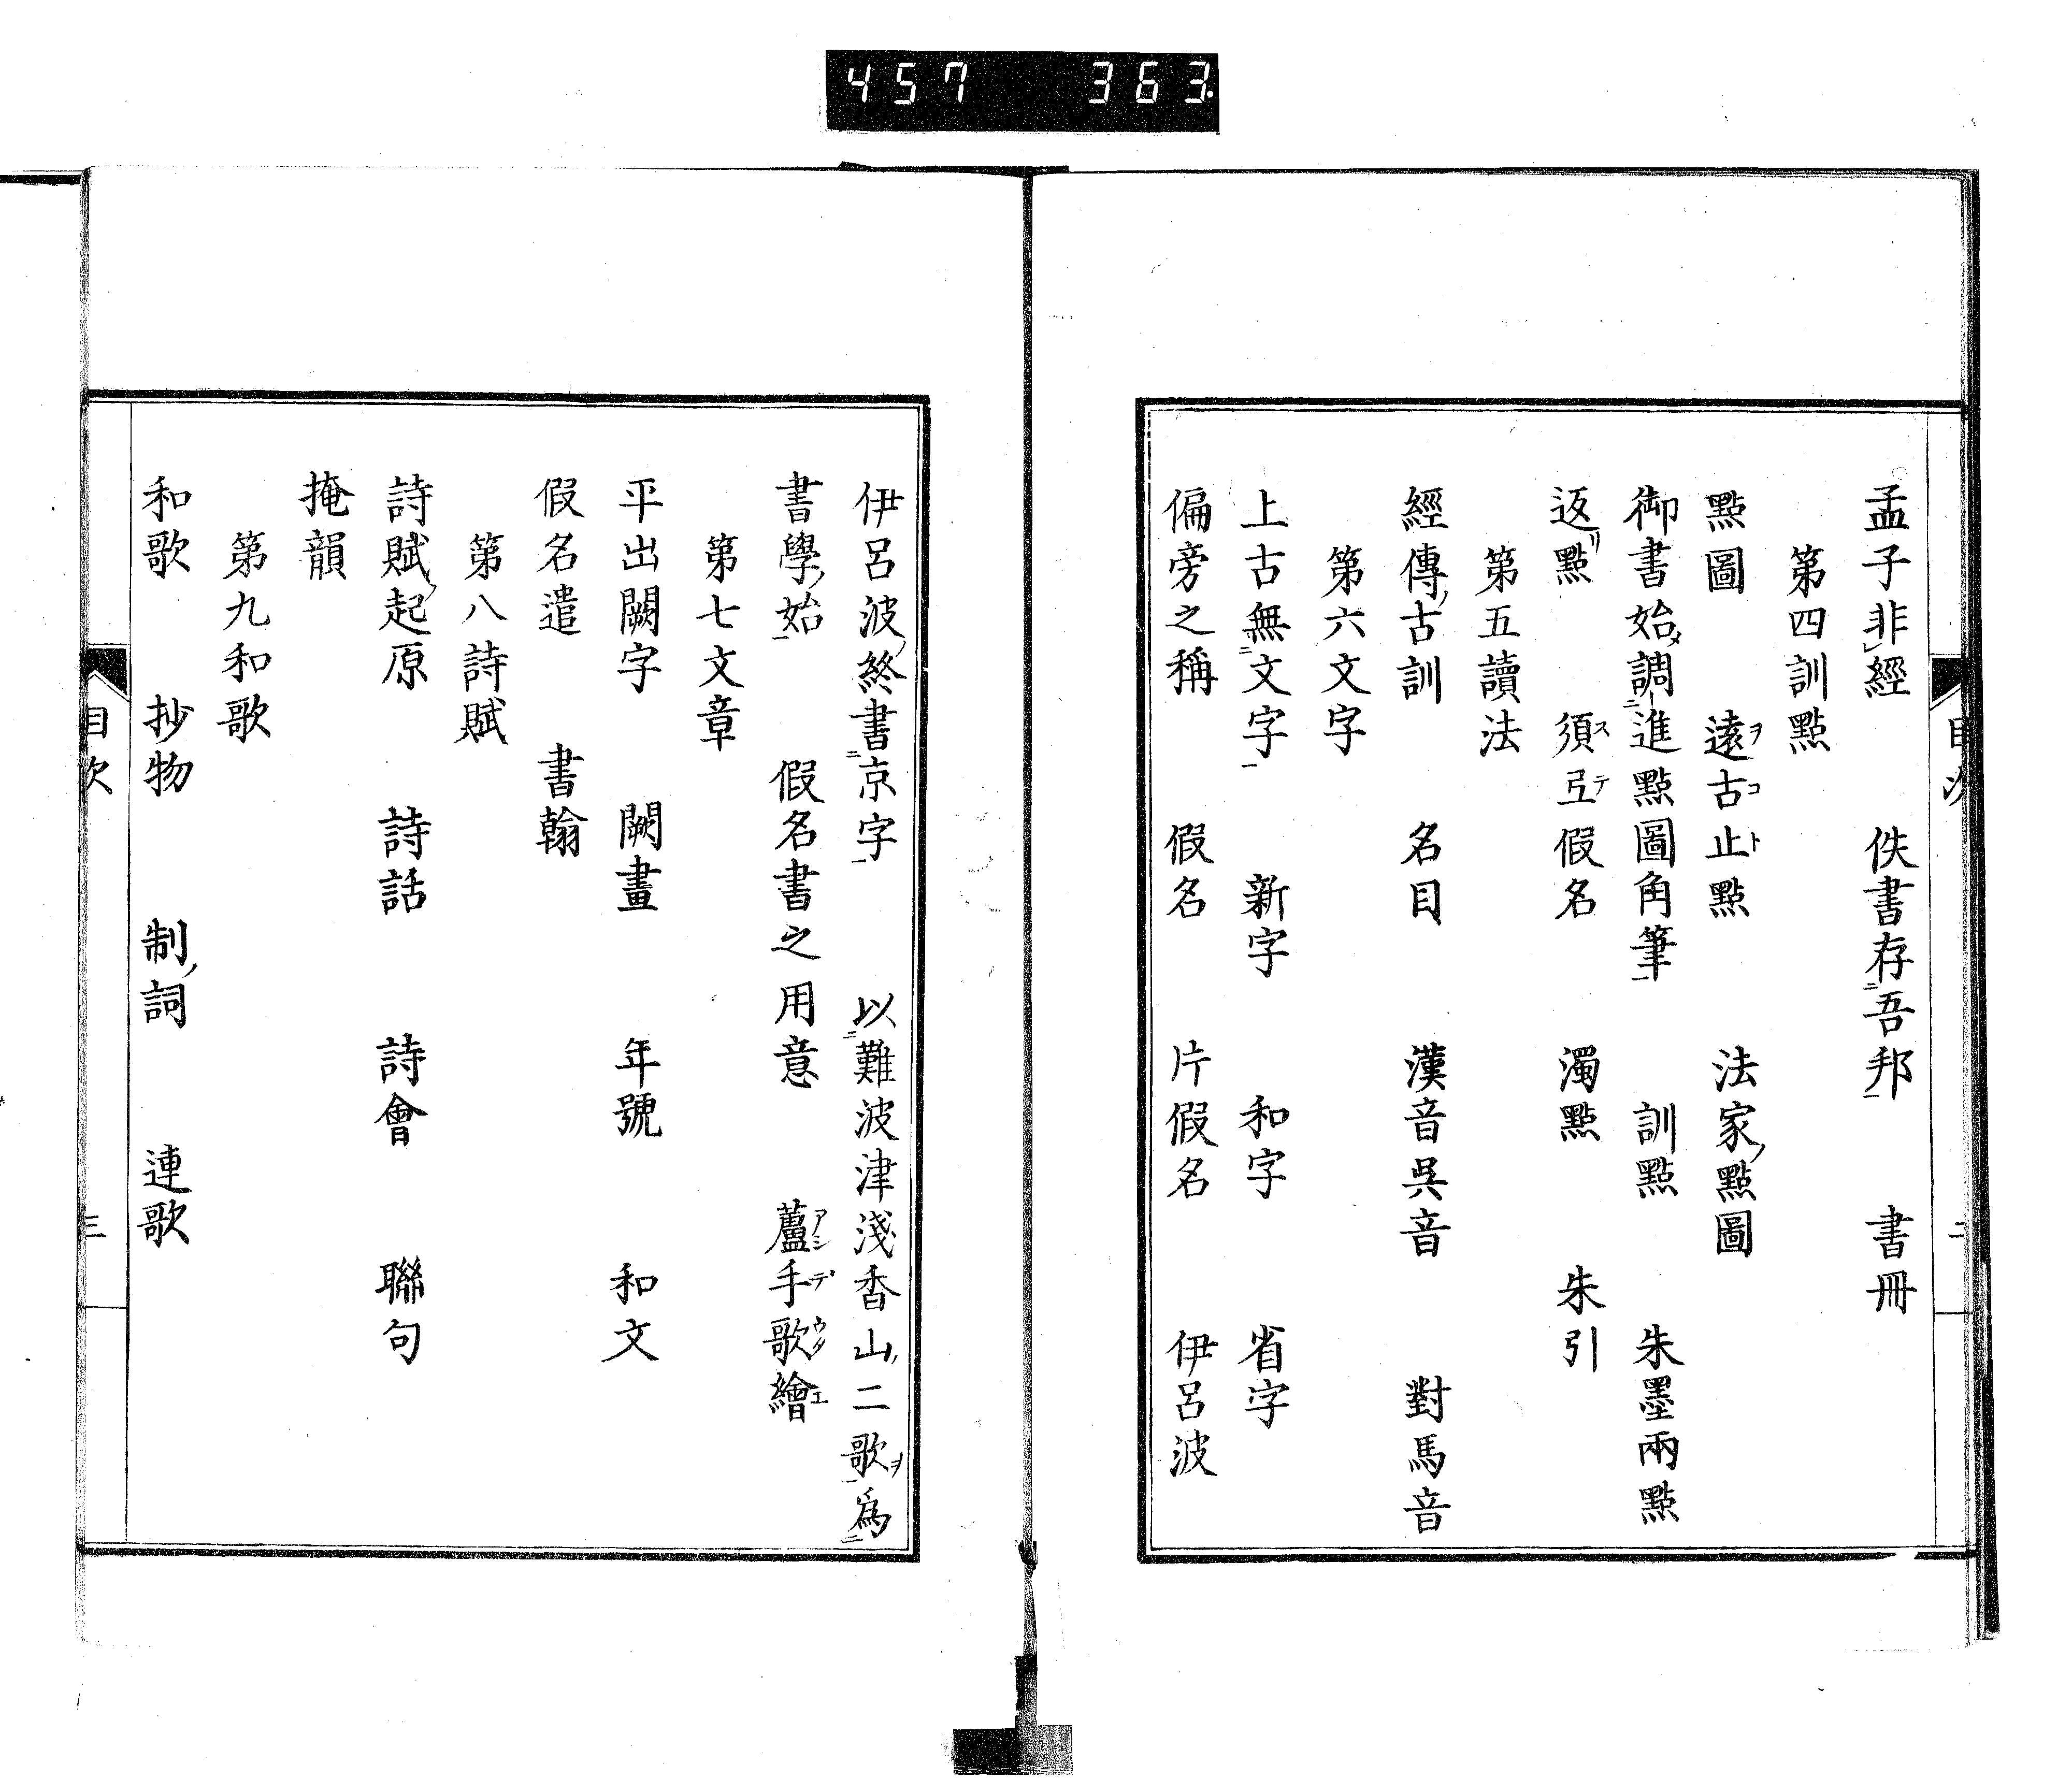 457 363.
孟子非經 佚書存吾邦 書冊
第四訓點
點圖 遠古止點 法家點圖
御書始調進點圖角筆 訓點 朱墨兩點
返點 須弖假名 濁點 朱引
第五讀法
經傳古訓 名目 漢音吳音 對馬音
第六文字
上古無文字 新字 和字 省字
偏旁之稱 假名 片假名 伊呂波
伊呂波終書京字 以難波津淺香山二歌爲
書學始 假名書之用意 蘆手歌繪
第七文章
平出闕字 闕畫 年號 和文
假名遣 書翰
第八詩賦
詩賦起原 詩話 詩會 聯句
掩韻
第九和歌
和歌 抄物 制詞 連歌
目次 三